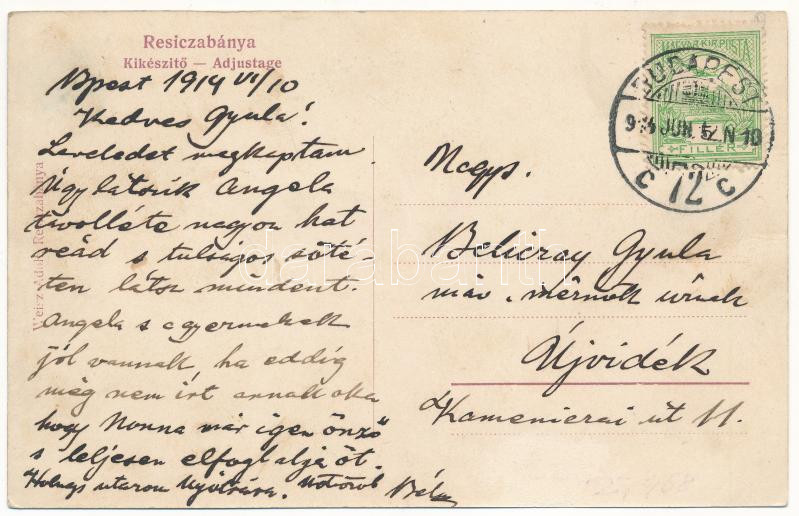 Resiczabánya
Kikészitő — Adjustage
Bpest 1914 VI/10
Kedves Gyula!
Leveledet megkaptam
Úgy látszik Angela
távolléte nagyon hat
reád s tulságos söté-
ten látsz mindent.
Angela s a gyermekek
jól vannak, ha eddig
még nem irt annak oka
hogy Nonna már igen önző
s teljesen elfoglalja őt.
Béla
Weisz Adolf, Resiczabánya
MAGYAR KIR. POSTA
FILLÉR
BUDAPEST
914 JUN. N 10
C 72 C
Nagys.
Beliczay Gyula
máv. mérnök úrnak
Újvidék
Kameniczai út 11.
darabanth